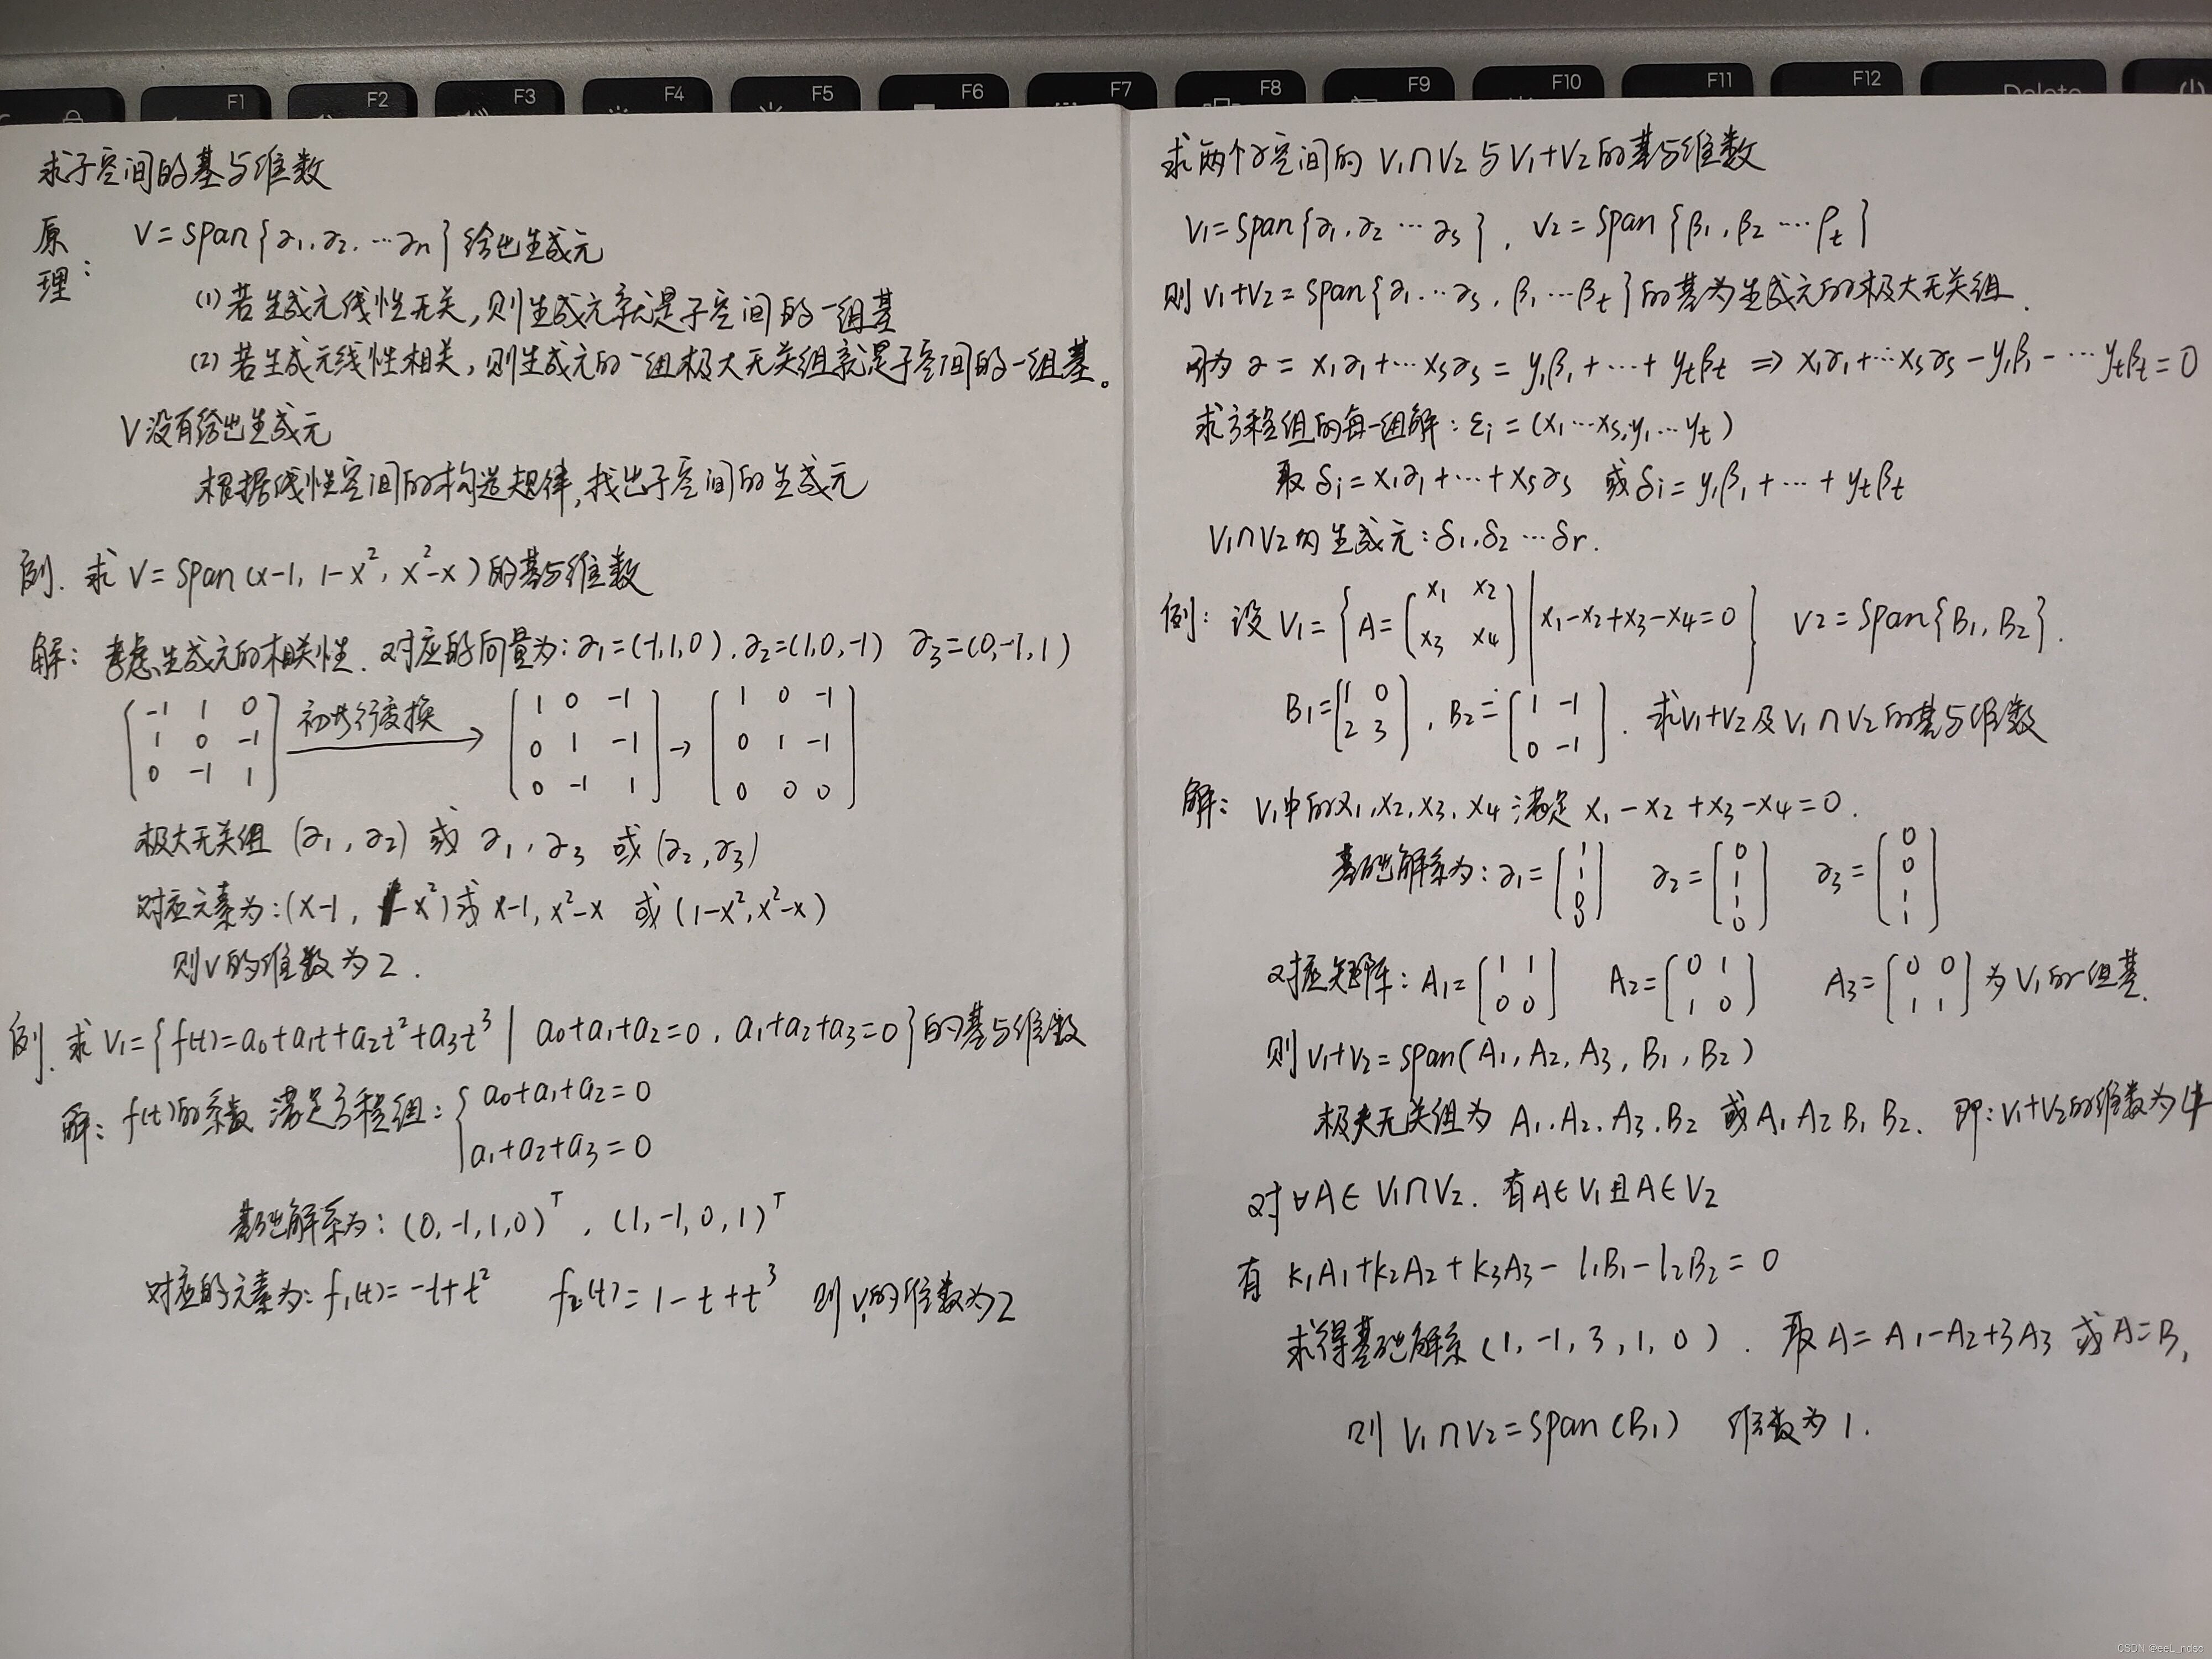 F1 F2 F3 F4 F5 F6 F7 F8 F9 F10 F11 F12 Delete
求子空间的基与维数
原理: V=span{α₁,α₂,…αn}给出生成元
(1) 若生成元线性无关,则生成元就是子空间的一组基
(2) 若生成元线性相关,则生成元的一组极大无关组就是子空间的一组基。
V没有给出生成元
根据线性空间的构造规律,找出子空间的生成元
例. 求 V=span(x-1, 1-x², x²-x)的基与维数
解: 考虑生成元的相关性. 对应的向量为: α₁=(-1,1,0). α₂=(1,0,-1) α₃=(0,-1,1)
[-1 1 0; 1 0 -1; 0 -1 1] 初等行变换 → [1 0 -1; 0 1 -1; 0 -1 1] → [1 0 -1; 0 1 -1; 0 0 0]
极大无关组 (α₁,α₂) 或 α₁,α₃ 或(α₂,α₃)
对应元素为:(x-1, 1-x²)或 x-1, x²-x 或 (1-x²,x²-x)
则V的维数为2.
例. 求 V₁={f(t)=a₀+a₁t+a₂t²+a₃t³ | a₀+a₁+a₂=0, a₁+a₂+a₃=0}的基与维数
解: f(t)的系数 满足方程组: { a₀+a₁+a₂=0
a₁+a₂+a₃=0
基础解系为: (0,-1,1,0)ᵀ, (1,-1,0,1)ᵀ
对应的元素为: f₁(t)=-t+t² f₂(t)=1-t+t³ 则V₁的维数为2
求两个子空间的 V₁∩V₂ 与 V₁+V₂ 的基与维数
V₁=span{α₁,α₂…αs}, V₂=span{β₁,β₂…βt}
则 V₁+V₂=span{α₁…αs, β₁…βt}的基为生成元的极大无关组.
因为 α = x₁α₁+…xsαs = y₁β₁+…+ytβt ⇒ x₁α₁+…xsαs-y₁β₁-…ytβt=0
求方程组的每一组解: εi=(x₁…xs,y₁…yt)
取 δi=x₁α₁+…+xsαs 或 δi=y₁β₁+…+ytβt
V₁∩V₂的生成元: δ₁,δ₂…δr.
例: 设 V₁={A=[x₁ x₂; x₃ x₄] | x₁-x₂+x₃-x₄=0} V₂=span{B₁,B₂}.
B₁=[1 0; 2 3], B₂=[1 -1; 0 -1]. 求V₁+V₂及V₁∩V₂的基与维数
解: V₁中的x₁,x₂,x₃,x₄满足 x₁-x₂+x₃-x₄=0.
基础解系为: α₁=[1 1 0 0] α₂=[0 1 1 0] α₃=[0 0 1 1]
对应矩阵: A₁=[1 1; 0 0] A₂=[0 1; 1 0] A₃=[0 0; 1 1] 为V₁的一组基.
则 V₁+V₂=span(A₁,A₂,A₃,B₁,B₂)
极大无关组为 A₁,A₂,A₃,B₂ 或 A₁ A₂ B₁ B₂. 即: V₁+V₂的维数为4
对∀A∈V₁∩V₂. 有A∈V₁且A∈V₂
有 k₁A₁+k₂A₂+k₃A₃-l₁B₁-l₂B₂=0
求得基础解系(1,-1,3,1,0). 取 A=A₁-A₂+3A₃ 或 A=B₁
则 V₁∩V₂=span(B₁) 维数为1.
CSDN @eeL_ndsc